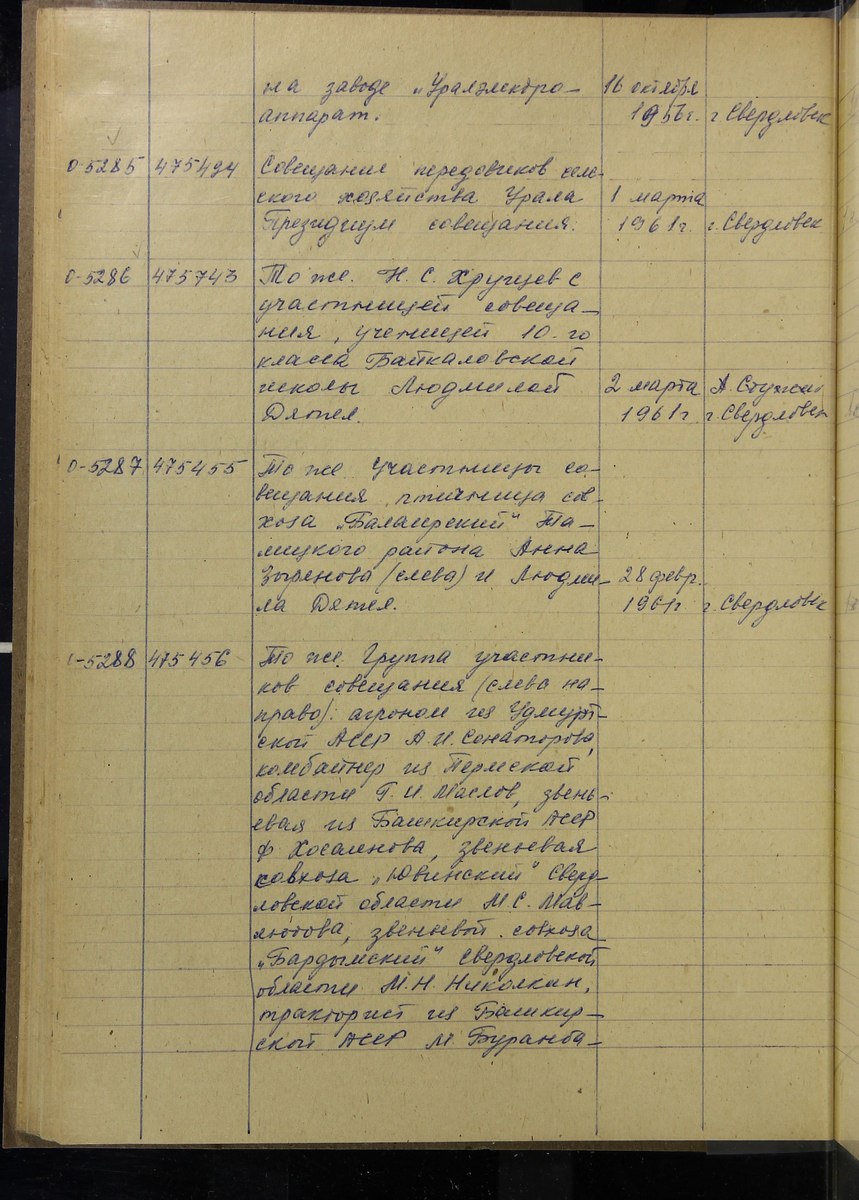 на заводе „Уралэлектро- 16 октября
аппарат. 1956г. г. Свердловск
0-5285 475494 Совещание передовиков сель-
ского хозяйства Урала 1 марта
Президиум совещания. 1961г. г. Свердловск
0-5286 475743 То же. Н. С. Хрущев с
участницей совеща-
ния, ученицей 10-го
класса Байкаловской
школы Людмилой 2 марта А.
Дятел. 1961г г Свердловск
0-5287 475455 То же Участницы со-
вещания птичница сов-
хоза „Балаирский" Та-
лицкого района Анна
(слева) и Людми- 28 февр.
ла Дятел. 1961г г. Свердловск
0-5288 475456 То же. Группа участни-
ков совещания (слева на-
право): агроном из Удмурт-
ской АССР А. И. Сенаторова,
комбайнер из Пермской
области Г. И. Маслов, звень-
евая из Башкирской АССР
Ф звеньевая
совхоза „Ювинский" Сверд-
ловской области М. С. Мав-
лютова, звеньевой совхоза
„Бардымский" Свердловской
области М. Н. Николкин,
тракторист из Башкир-
ской АССР М. Буранба-